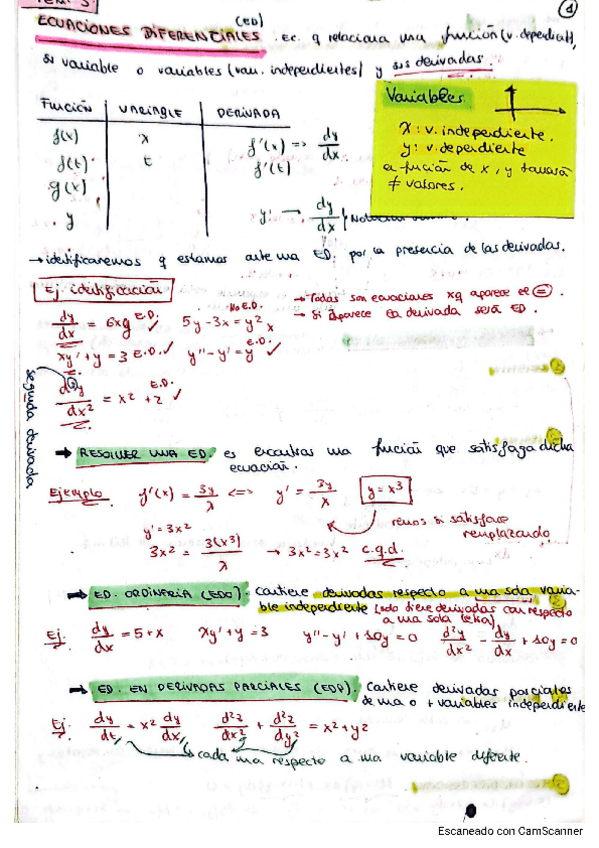 TEMA 3
①
ECUACIONES DIFERENCIALES (ED). ec. q relaciona una función (v. dependiente),
su variable o variables (var. independientes) y sus derivadas.
FUNCIÓN | VARIABLE | DERIVADA
f(x) x f'(x) => dy/dx
f(t) t f'(t)
g(x)
y y' → dy/dx
Variables
x: v. independiente.
y: v. dependiente
en función de x, y tomará
≠ valores.
→ identificaremos q estamos ante una ED. por la presencia de las derivadas.
Ej identificación
→ Todas son ecuaciones xq aparece el =.
→ Si aparece la derivada será ED.
dy/dx = 6xy E.D. 5y-3x = y² x No E.D.
xy' + y = 3 E.D. ✓ y'' - y' = y E.D. ✓
d²y/dx² = x² + 2 E.D. ✓
segunda derivada
→ RESOLVER UNA ED. es encontrar una función que satisfaga dicha
ecuación.
Ejemplo. f'(x) = 3y/x <=> y' = 3y/x y = x³
y' = 3x² vemos si satisface
remplazando
3x² = 3(x³)/x → 3x² = 3x² c.q.d.
→ ED. ORDINARIA (EDO). Contiene derivadas respecto a una sola varia-
ble independiente (solo tiene derivadas con respecto
a una sola letra)
Ej: dy/dx = 5 + x xy' + y = 3 y'' - y' + 10y = 0 d²y/dx² - dy/dx + 10y = 0
→ ED. EN DERIVADAS PARCIALES (EDP). Contiene derivadas parciales
de una o + variables independiente
Ej: dy/dt = x² dy/dx, d²z/dx² + d²z/dy² = x² + y²
cada una respecto a una variable diferente.
Escaneado con CamScanner